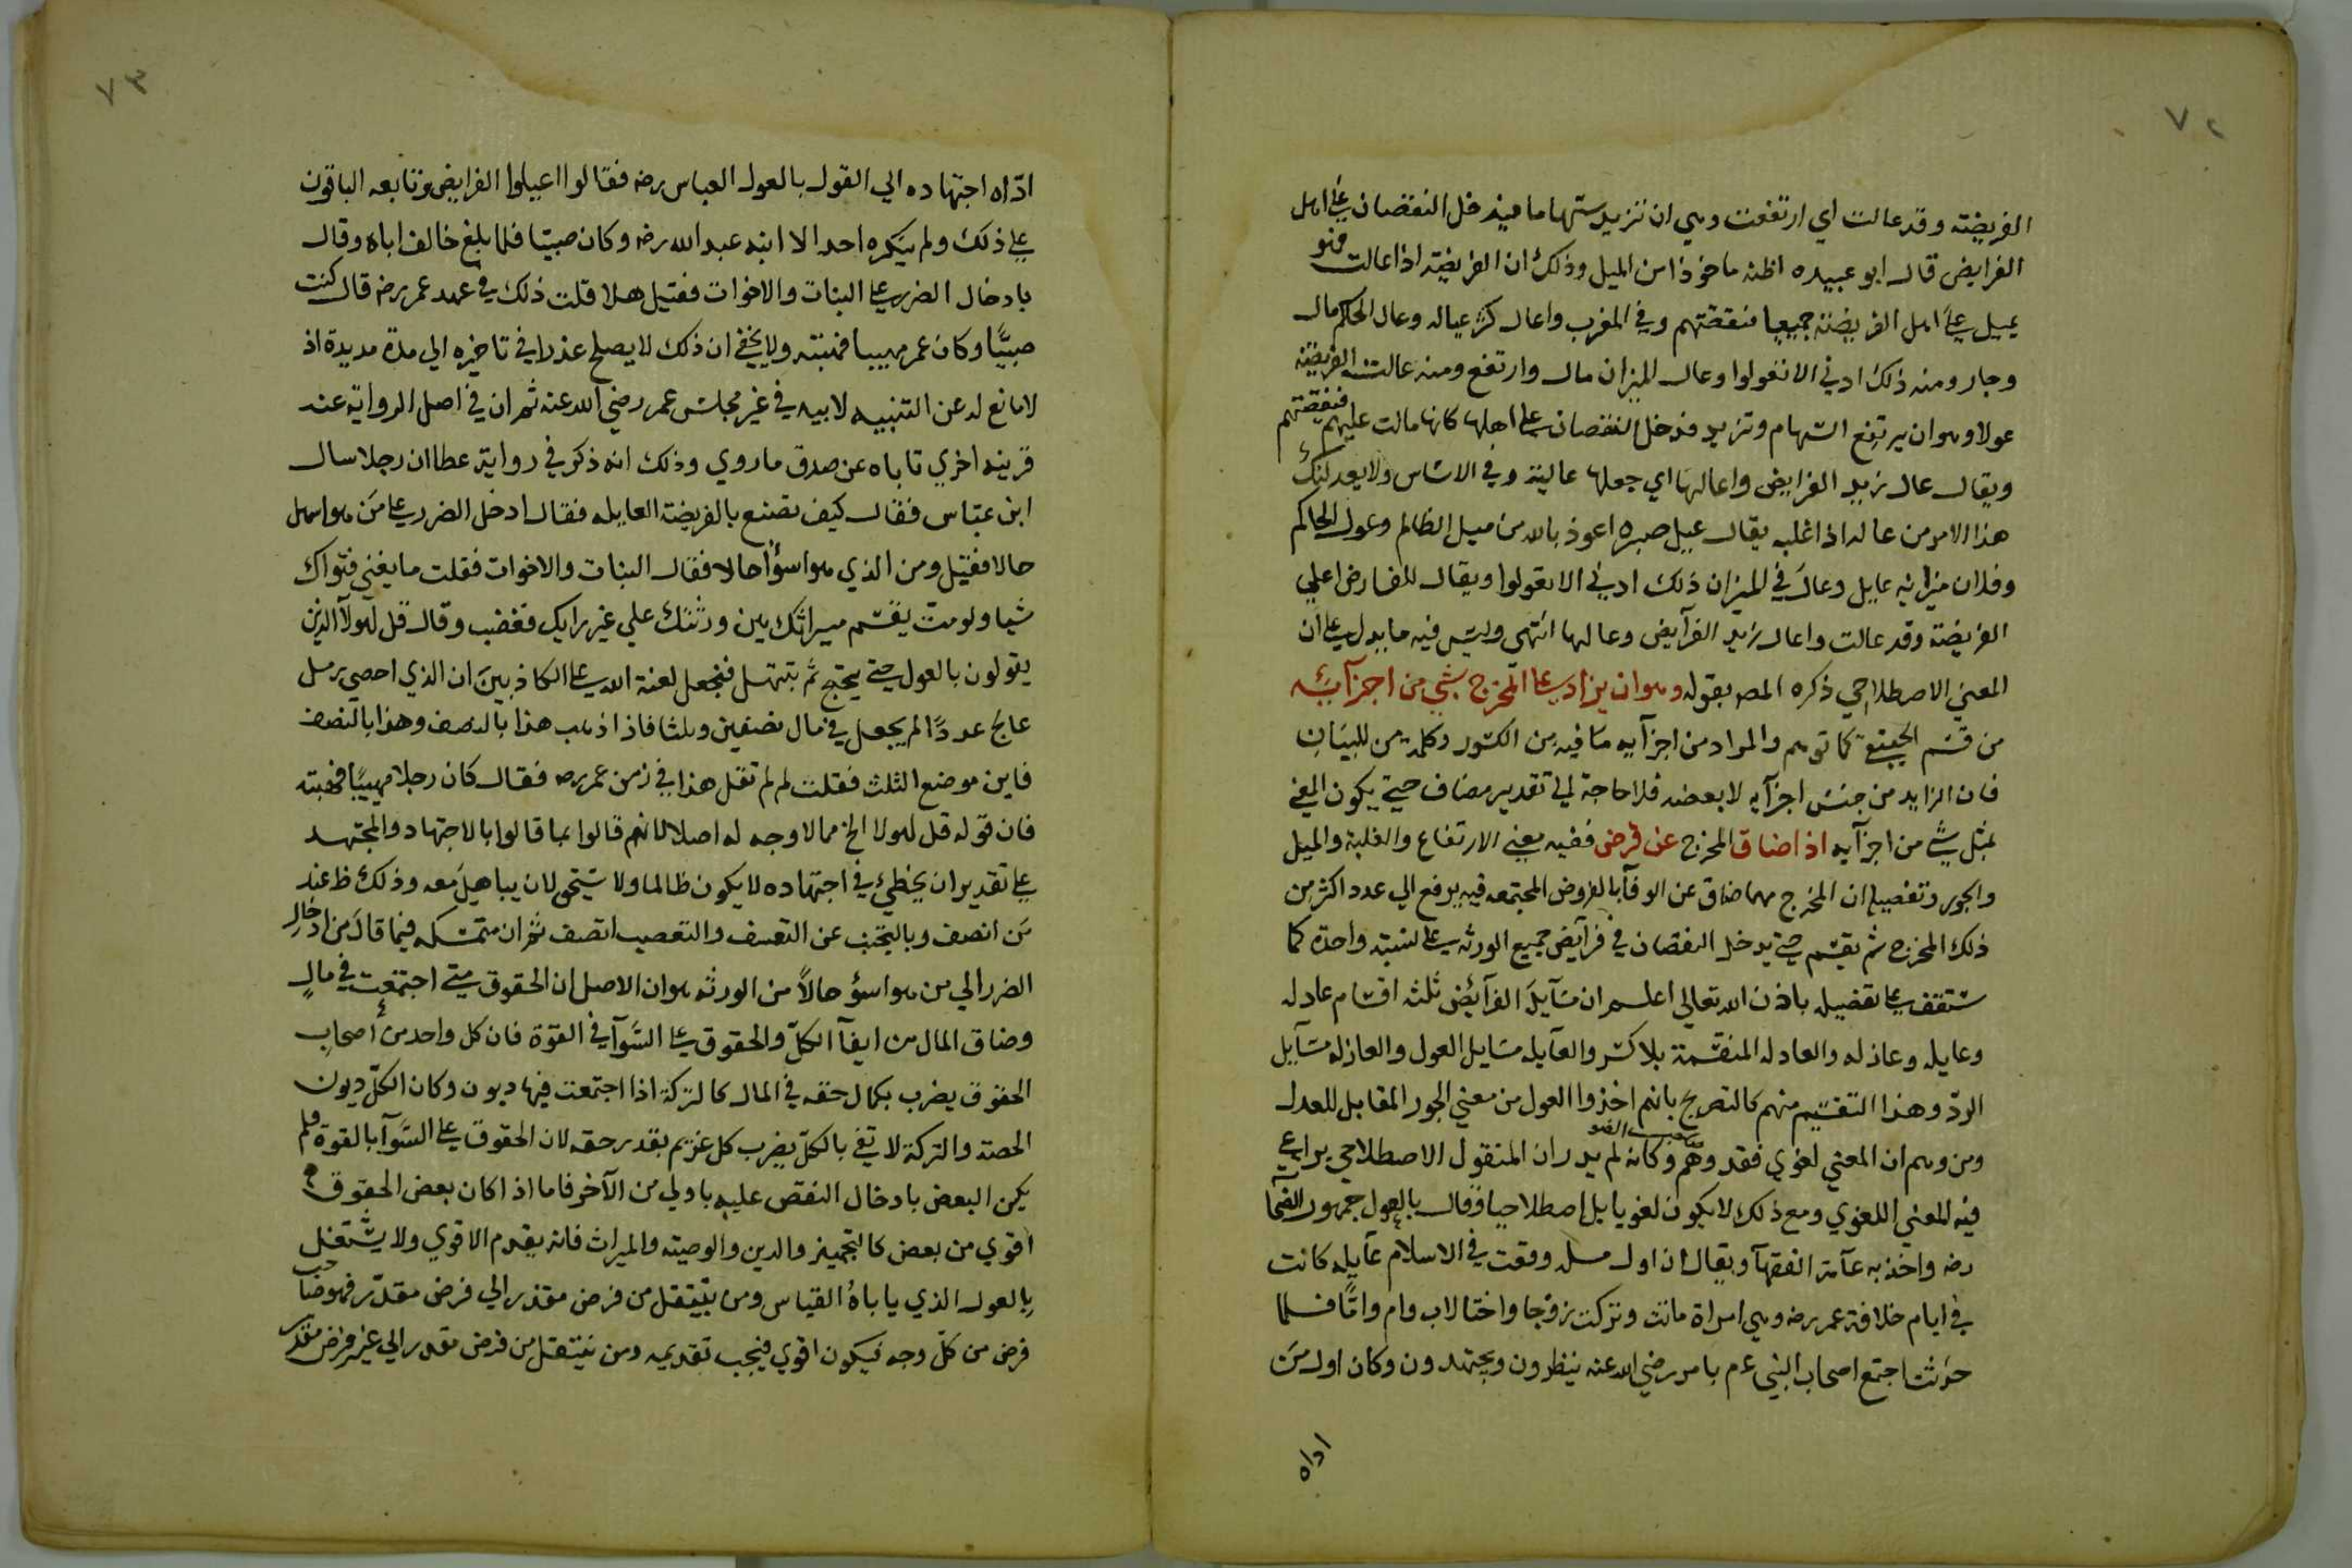 ٧٢
الفريضة وقد عالت اي ارتفعت وهي ان تزيد سهامها فيدخل النقصان على اهل
الفرايض قال ابو عبيده اظنه ماخوذا من الميل وذلك ان الفريضة اذا عالت فهو
يميل على اهل الفريضة جميعا فنقصتهم وفي المغرب واعال كثر عياله وعال الحاكم مال
وجار ومنه ذلك ادني الا تعولوا وعال الميزان مال وارتفع ومنه عالت الفريضة
عولا وهو ان يرتفع السهام وتزيد فدخل النقصان على اهلها كانها مالت عليهم فنقصتهم
ويقال عال زيد الفرايض واعالها اي جعلها عالية وفي الاساس ولا يعدلنك
هذا الامر من عاله اذا غلبه يقال عيل صبره اعوذ بالله من ميل الظالم وعول الحاكم
وفلان ميزانه عايل وعال في الميزان ذلك ادني الا تعولوا ويقال للفارض اعلي
الفريضة وقد عالت واعال زيد الفرآيض وعالها انتهى وليس فيه ما يدل على ان
المعني الاصطلاحي ذكره المص بقوله وهو ان يزاد على المخرج شي من اجزآيه
من قسم كما توهم والمراد من اجزآيه ما فيه من الكسور وكلمة من للبيان
فان الزايد من جنس اجزآيه لا بعضه فلا حاجة الي تقدير مضاف حتي يكون المعني
بمثل شي من اجزآيه اذا ضاق المخرج عن فرض ففيه معني الارتفاع والغلبة والميل
والجور وتفصيله ان المخرج مهما ضاق عن الوفآ بالفروض المجتمعه فيه يرفع الي عدد اكثر من
ذلك المخرج ثم يقسم حتي يدخل النقصان في فرآيض جميع الورثه على نسبة واحدة كما
ستقف على تفصيله باذن الله تعالي اعلم ان مسآيل الفرآئض ثلثه اقسام عادله
وعايله وعاذله والعادله المنقسمة بلا كسر والعآيله مسايل العول والعاذله مسآيل
الردّ وهذا التقسيم منهم كالتصريح بانهم اخذوا العول من معني الجور المقابل للعدل
ومن وهم ان المعني لغوي فقد وهم وكانه لم يدر ان المنقول الاصطلاحي يراعي
فيه المعني اللغوي ومع ذلك لا يكون لغويا بل اصطلاحيا وقال بالعول جمهور الصحآ
رضه واخذ به عآمة الفقهآ ويقال ان اول مسله وقعت في الاسلام عآيله كانت
في ايام خلافة عمر رضه وهي امراة ماتت وتركت زوجا واختا لاب وام وامًّا فلما
حدثت اجتمع اصحاب النبي عم بامره رضي الله عنه ينظرون ويجتهدون وكان اول من
اداه
٧٣
ادّاه اجتهاده الي القول بالعول العباس رضه فقالوا اعيلوا الفرايض وتابعه الباقون
على ذلك ولم ينكره احد الا ابنه عبد الله رضه وكان صبيّا فلما بلغ خالف اباه وقال
بادخال الضرر على البنات والاخوات فقيل هلا قلت ذلك في عهد عمر رضه قال كنت
صبيًّا وكان عمر مهيبا فهبته ولا يخفي ان ذلك لا يصلح عذرا في تاخيره الي مدة مديدة اذ
لا مانع له عن التنبيه لابيه في غير مجلس عمر رضي الله عنه ثم ان في اصل الرواية عنه
قرينه اخري تاباه عن صدق ما روي وذلك انه ذكر في رواية عطا ان رجلا سال
ابن عبّاس فقال كيف تصنع بالفريضة العايله فقال ادخل الضرر على من هو اسهل
حالا فقيل ومن الذي هو اسؤا حالا فقال البنات والاخوات فقلت ما يغني فتواك
شيا ولو متّ يقسّم ميراثك بين ورثتك علي غير رايك فغضب وقال قل لهولآ الذين
يقولون بالعول حتي يحتج ثم نبتهل فنجعل لعنة الله على الكاذبين ان الذي احصي رمل
عالج عددًا لم يجعل في مال نصفين وثلثا فاذا ذهب هذا بالنصف وهذا بالنصف
فاين موضع الثلث فقلت لم لم تقل هذا في زمن عمر رضه فقال كان رجلا مهيبًا فهبته
فان قوله قل لهولا الخ مما لا وجه له اصلا لانهم قالوا بما قالوا بالاجتهاد والمجتهد
على تقدير ان يخطئ في اجتهاده لا يكون ظالما ولا يستحق لان يباهل معه وذلك ظ عند
من انصف وبالتجنب عن التعسف والتعصب اتصف ثم ان متمسكه فيما قال من ادخال
الضرر الي من هو اسؤ حالاً من الورثه هو ان الاصل ان الحقوق متي اجتمعت في مالٍ
وضاق المال من ايفآ الكلّ والحقوق على السّوآ في القوّة فان كل واحد من اصحاب
الحقوق يضرب بكمال حقه في المال كالتركة اذا اجتمعت فيها ديون وكان الكلّ ديون
الصحة والتركة لا تفي بالكلّ يضرب كل غريم بقدر حقه لان الحقوق على السّوآ بالقوة فلم
يكن البعض بادخال النقص عليه باولي من الآخر فاما اذا كان بعض الحقوق
اقوي من بعض كالتجهيز والدين والوصيّه والميراث فانه يقدم الاقوي ولا يشتغل
بالعول الذي ياباهُ القياس ومن ينتقل من فرض مقدر الي فرض مقدّر فهو صاحب
فرض من كلّ وجه فيكون اقوي فيجب تقديمه ومن ينتقل من فرض مقدر الي غير فرض مقدر